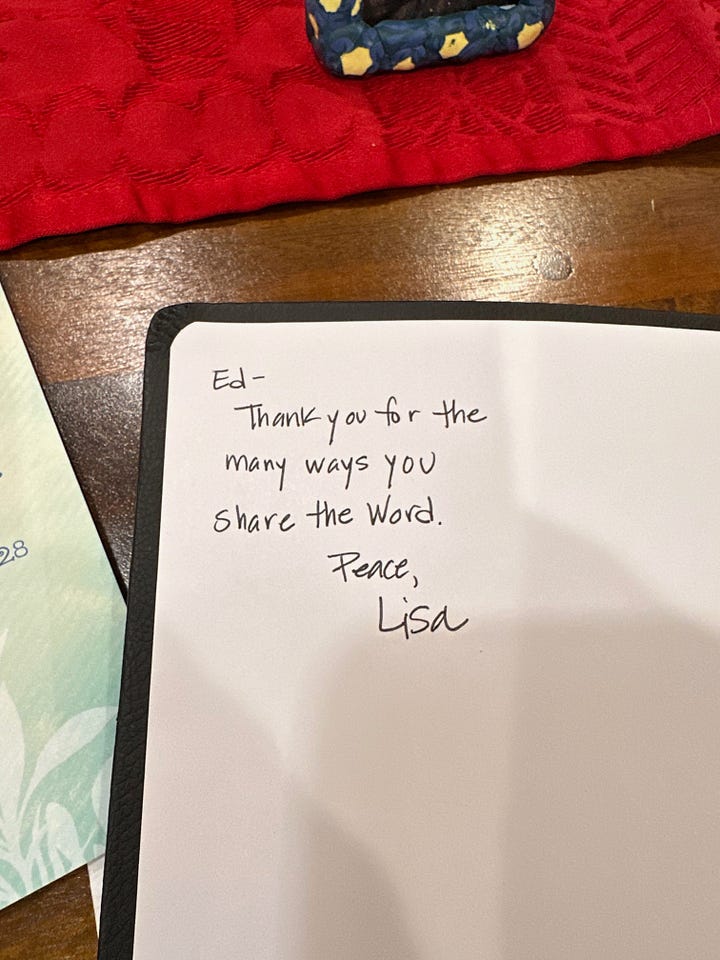 Ed-
Thank you for the
many ways you
share the Word.
Peace,
Lisa
28